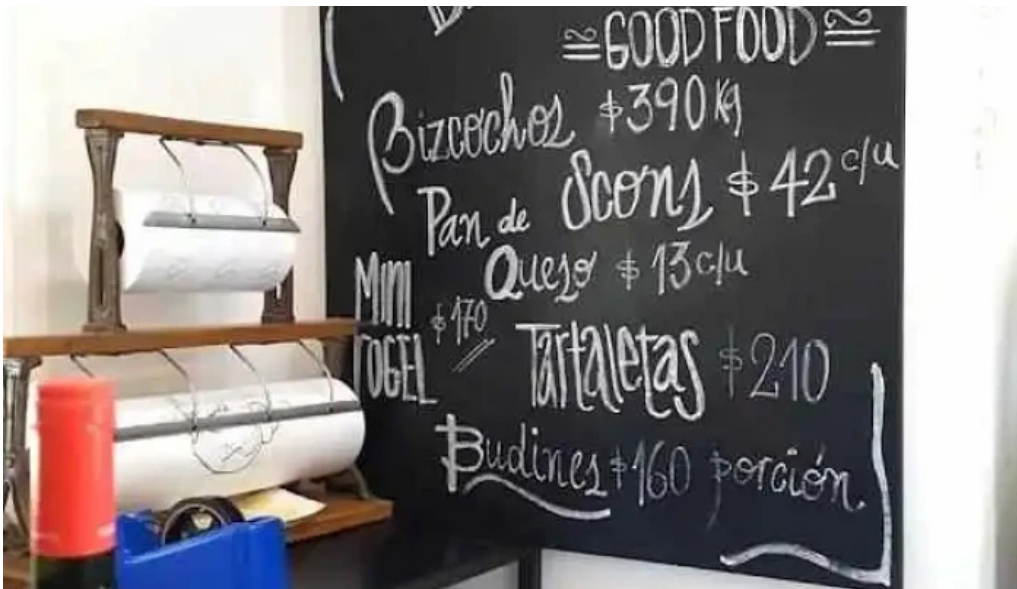 GOOD FOOD
Bizcochos $390 Kg
Scons $42 c/u
Pan de
Queso $13 c/u
MINI
$170
TOGEL
Tartaletas $210
Budines $160 porción